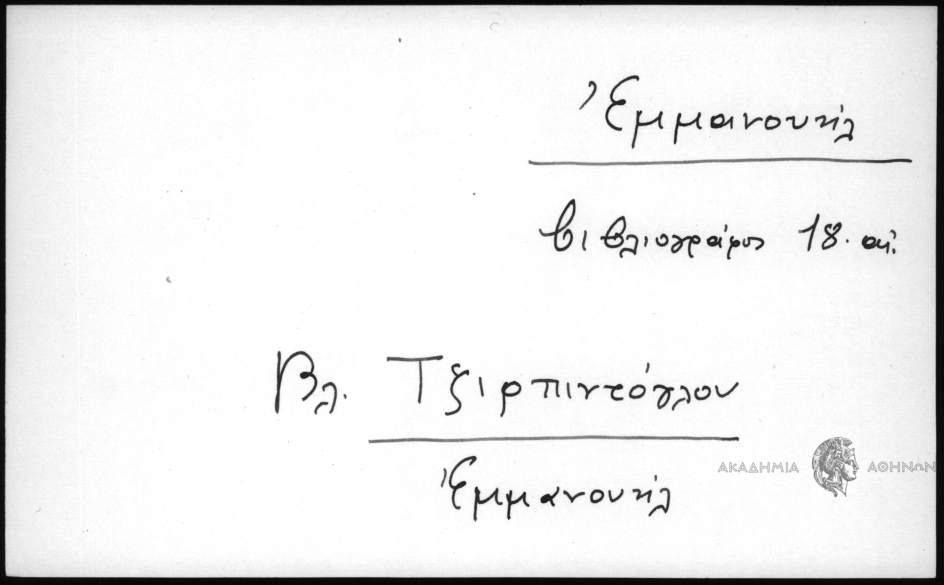 Ἐμμανουήλ
βιβλιογράφος 18. αἰ.
Βλ. Τζιρπιντόγλου
Ἐμμανουήλ
ΑΚΑΔΗΜΙΑ ΑΘΗΝΩΝ